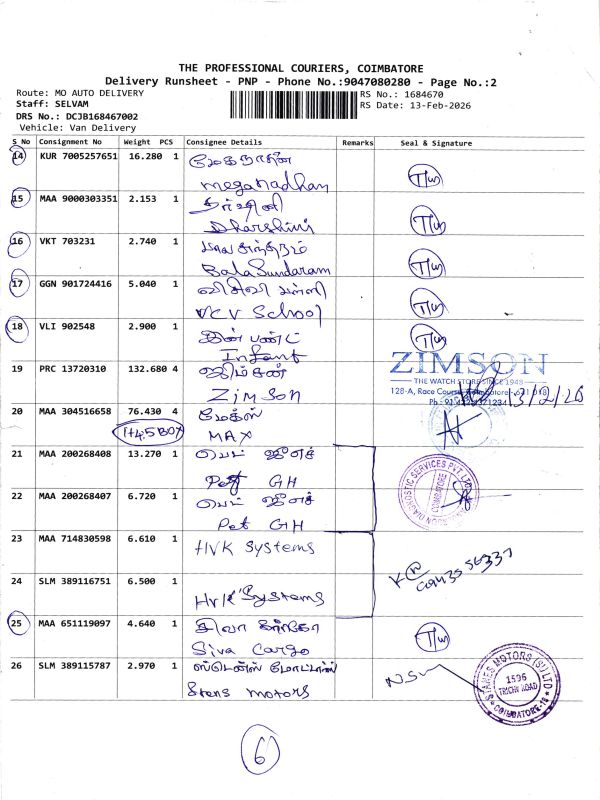 THE PROFESSIONAL COURIERS, COIMBATORE
Delivery Runsheet - PNP - Phone No.:9047080280 - Page No.:2
Route: MO AUTO DELIVERY
Staff: SELVAM
DRS No.: DCJB168467002
Vehicle: Van Delivery
RS No.: 1684670
RS Date: 13-Feb-2026
S No Consignment No Weight PCS Consignee Details Remarks Seal & Signature
14 KUR 7005257651 16.280 1 மேகநாதன்
meganadhan T/W
15 MAA 9000303351 2.153 1 தர்ஷினி
Dharshini T/W
16 VKT 703231 2.740 1 பாலசுந்தரம்
BalaSundaram T/W
17 GGN 901724416 5.040 1 விசிவி பள்ளி
VCV School T/W
18 VLI 902548 2.900 1 இன்பண்ட்
Infant T/W
19 PRC 13720310 132.680 4 ஜிம்சன்
ZimSon
ZIMSON
THE WATCH STORE SINCE 1948
128-A, Race Course, Coimbatore - 641 018
13/2/26
20 MAA 304516658 76.430 4 மேக்ஸ்
1+4:5 BOX MAX
21 MAA 200268408 13.270 1 பெட் ஜிஎச்
Pet GH
22 MAA 200268407 6.720 1 பெட் ஜிஎச்
Pet GH
DIAGNOSTIC SERVICES PVT. LTD
COIMBATORE
23 MAA 714830598 6.610 1 HVK Systems
24 SLM 389116751 6.500 1
HVK Systems
25 MAA 651119097 4.640 1 சிவா கார்கோ
Siva Cargo T/W
26 SLM 389115787 2.970 1 ஸ்டென்ஸ் மோட்டார்ஸ்
Stens motors
STANES MOTORS (SI) LTD
1596
TRICHY ROAD
COIMBATORE-18
6